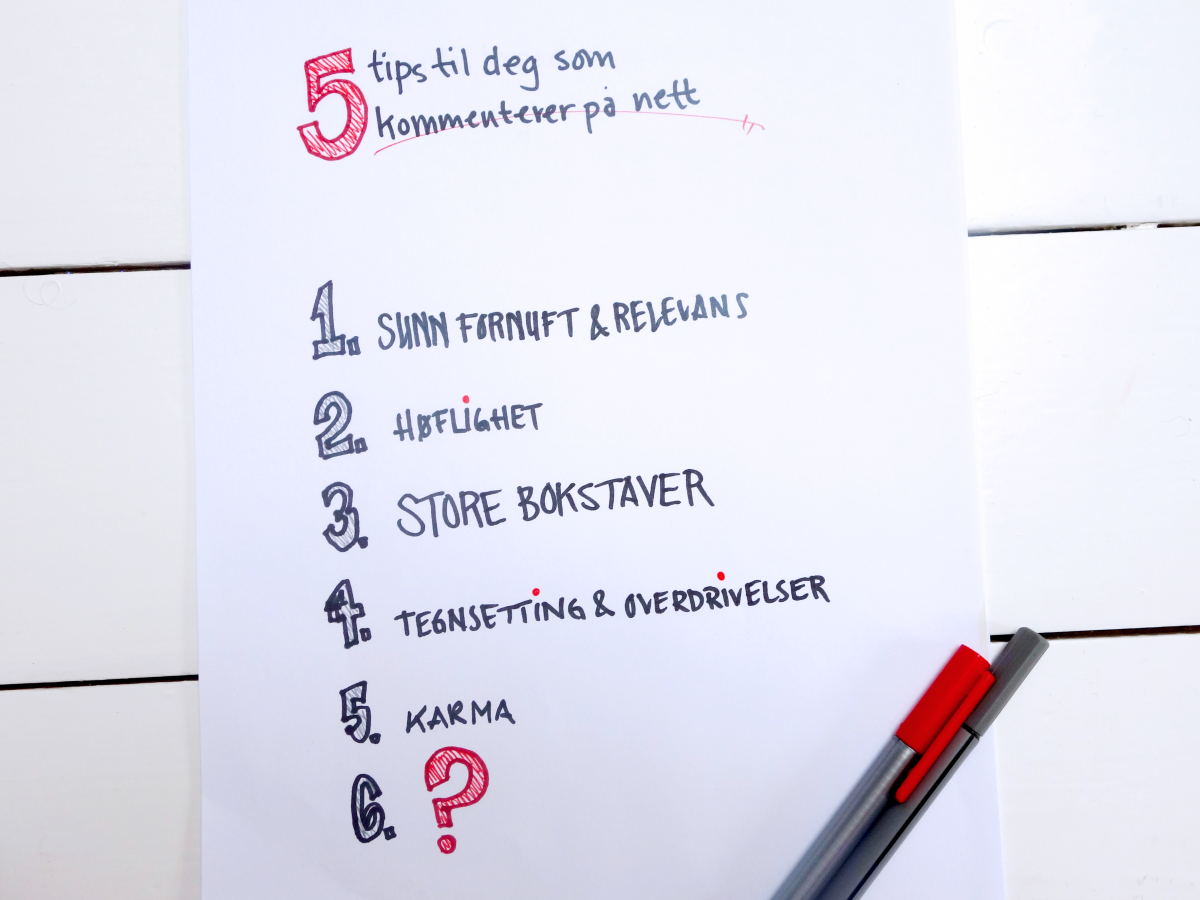 5 tips til deg som
kommenterer på nett
1. SUNN FORNUFT & RELEVANS
2. HØFLiGHET
3. STORE BOKSTAVER
4. TEGNSETTiNG & OVERDRiVELSER
5. KARMA
6. ?